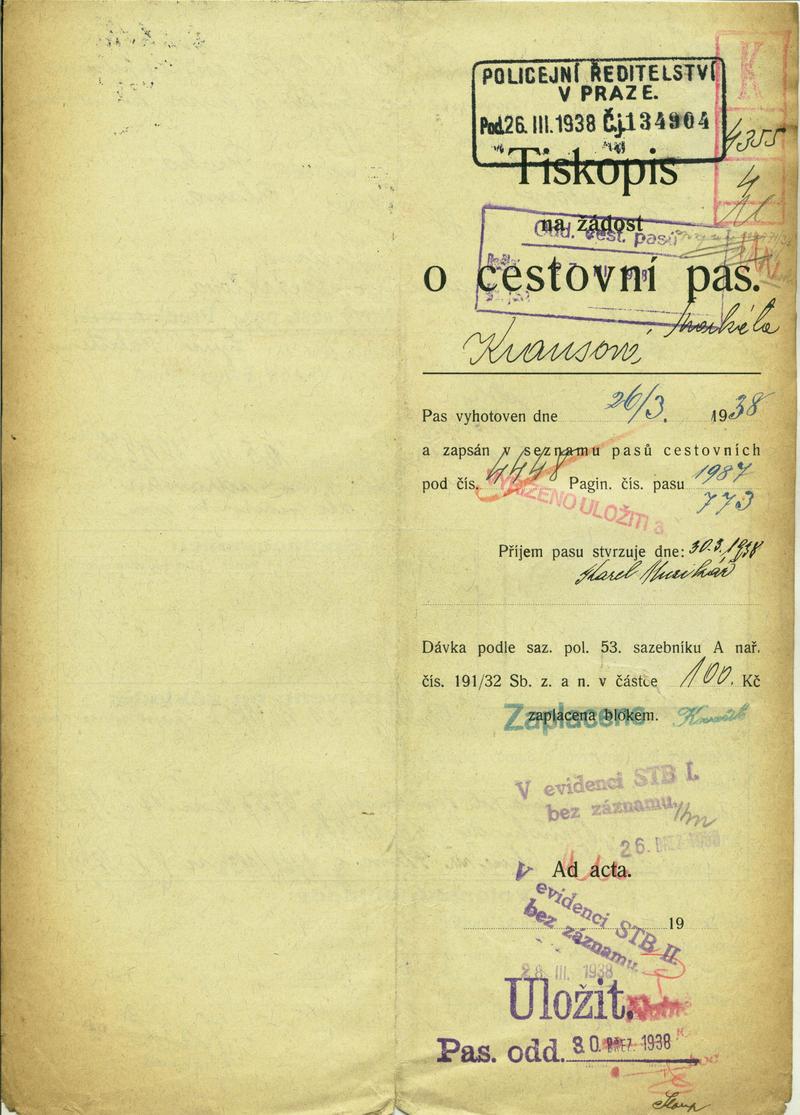 POLICEJNÍ ŘEDITELSTVÍ
V PRAZE.
Pod. 26. III. 1938 Čj. 134904
K
4355
4
Tiskopis
na žádost
Odd. cest. pasů
o cestovní pas.
Krausová,
Pas vyhotoven dne 26/3. 1938
a zapsán v seznamu pasů cestovních
pod čís. 4448 Pagin. čís. pasu 1987
773
VYŘÍZENO ULOŽITI
Příjem pasu stvrzuje dne: 30.3.1938
Karel
Dávka podle saz. pol. 53. sazebníku A nař.
čís. 191/32 Sb. z. a n. v částce 100. Kč
Zaplaceno
zaplacena blokem.
V evidenci STB I.
bez záznamu.
26. BŘEZ 1938
Ad acta.
V evidenci STB II.
bez záznamu
19
28. III. 1938
Uložit.
Pas. odd. 30. BŘEZ. 1938